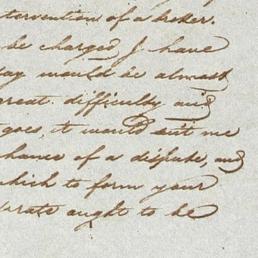 tervention of a broker.
be charged I have
day would be almost
great difficulty and
goes, it would suit me
chance of a dispute, and
which to form your
rate ought to be